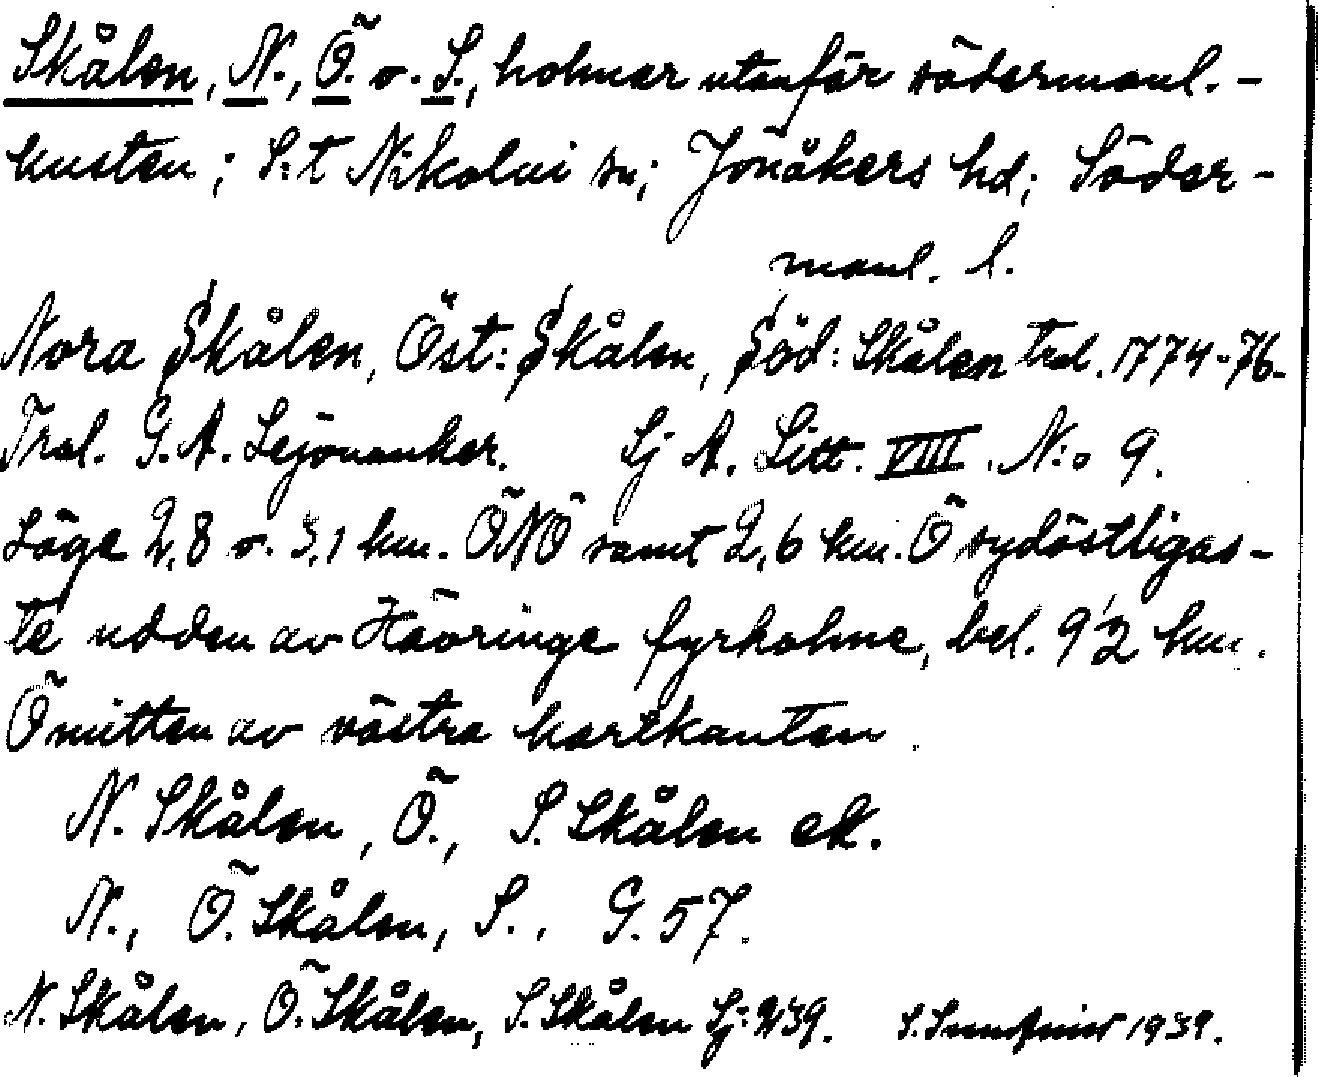 Skålen, N., Ö. o. S., holmar utanför södermanl.-
kusten; S:t Nikolai sn; Jönåkers hd; Söder-
manl. l.
Nora Skålen, Öst: Skålen, Söd: Skålen trol. 1774-76.
Trol. G. A. Lejonanker. Sj A. Litt. VIII. N:o 9.
Läge 2,8 o. 3,1 km. ÖNÖ samt 2,6 km. Ö sydöstligas-
te udden av Hävringe fyrholme, bel. 9 1/2 km.
Ö mitten av västra kartkanten.
N. Skålen, Ö., S. Skålen ek.
N., Ö. Skålen, S., G. 57.
N. Skålen, Ö. Skålen, S. Skålen Sj: 939. S. 1939.